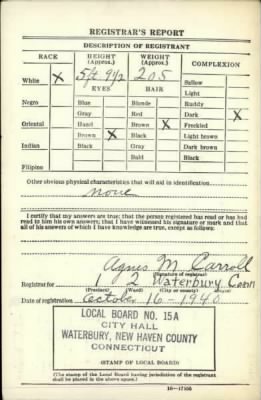 REGISTRAR'S REPORT
DESCRIPTION OF REGISTRANT
RACE HEIGHT (Approx.) WEIGHT (Approx.) COMPLEXION
White X 5 ft 9 1/2 205 Sallow
EYES HAIR Light
Negro Blue Blonde Ruddy
Gray Red Dark X
Oriental Hazel Brown X Freckled
Brown X Black Light brown
Indian Black Gray Dark brown
Bald Black
Filipino
Other obvious physical characteristics that will aid in identification
none
I certify that my answers are true; that the person registered has read or has had
read to him his own answers; that I have witnessed his signature or mark and that
all of his answers of which I have knowledge are true, except as follows:
Agnes M. Carroll
(Signature of registrar)
Registrar for 2 Waterbury Conn
(Precinct) (Ward) (City or county)
Date of registration October 16 - 1940
LOCAL BOARD NO. 15A
CITY HALL
WATERBURY, NEW HAVEN COUNTY
CONNECTICUT
(STAMP OF LOCAL BOARD)
(The stamp of the Local Board having jurisdiction of the registrant
shall be placed in the above space.)